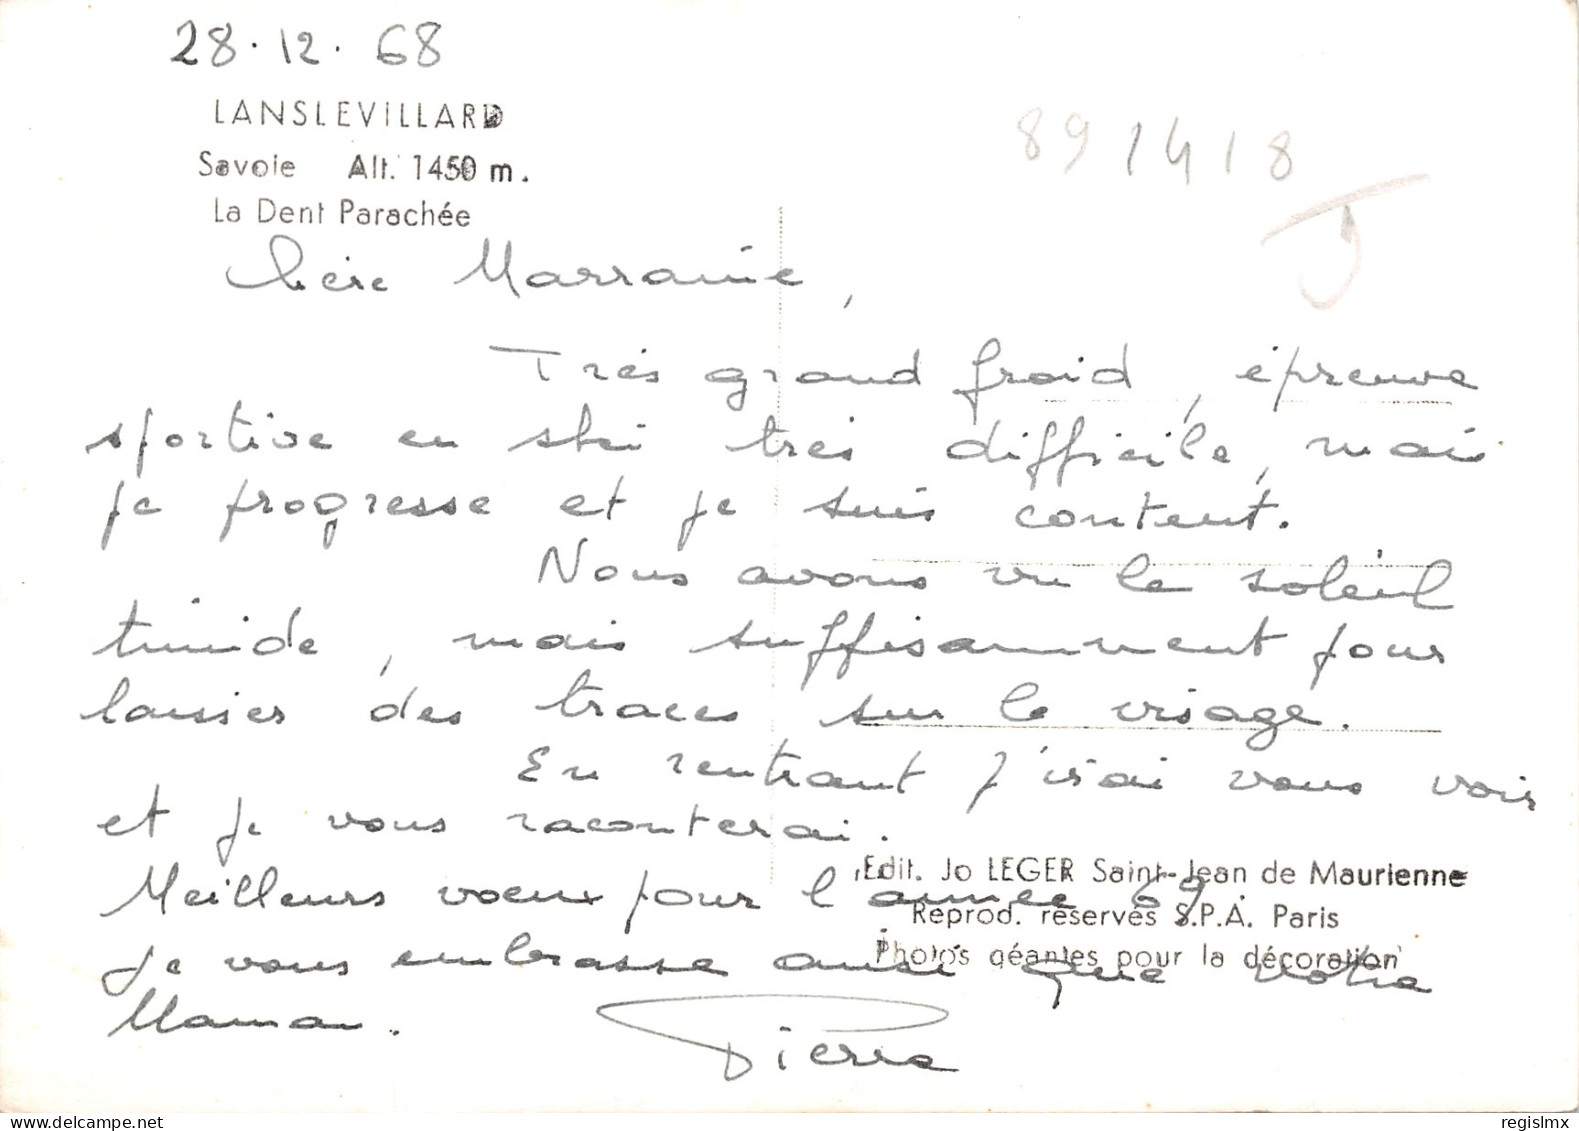 28.12.68
LANSLEVILLARD
Savoie Alt. 1450 m.
La Dent Parachée
891418
Chère Marraine,
Très grand froid, épreuve
sportive en ski très difficile, mais
je progresse et je suis content.
Nous avons vu le soleil
timide, mais suffisamment pour
laisser des traces sur le visage.
En rentrant j'irai vous voir
et je vous raconterai.
Edit. Jo LEGER Saint-Jean de Maurienne
Meilleurs voeux pour l'année 69.
Reprod. réservés S.P.A. Paris
Je vous embrasse ainsi que votre
Photos géantes pour la décoration
Maman.
Pierre
regislmx